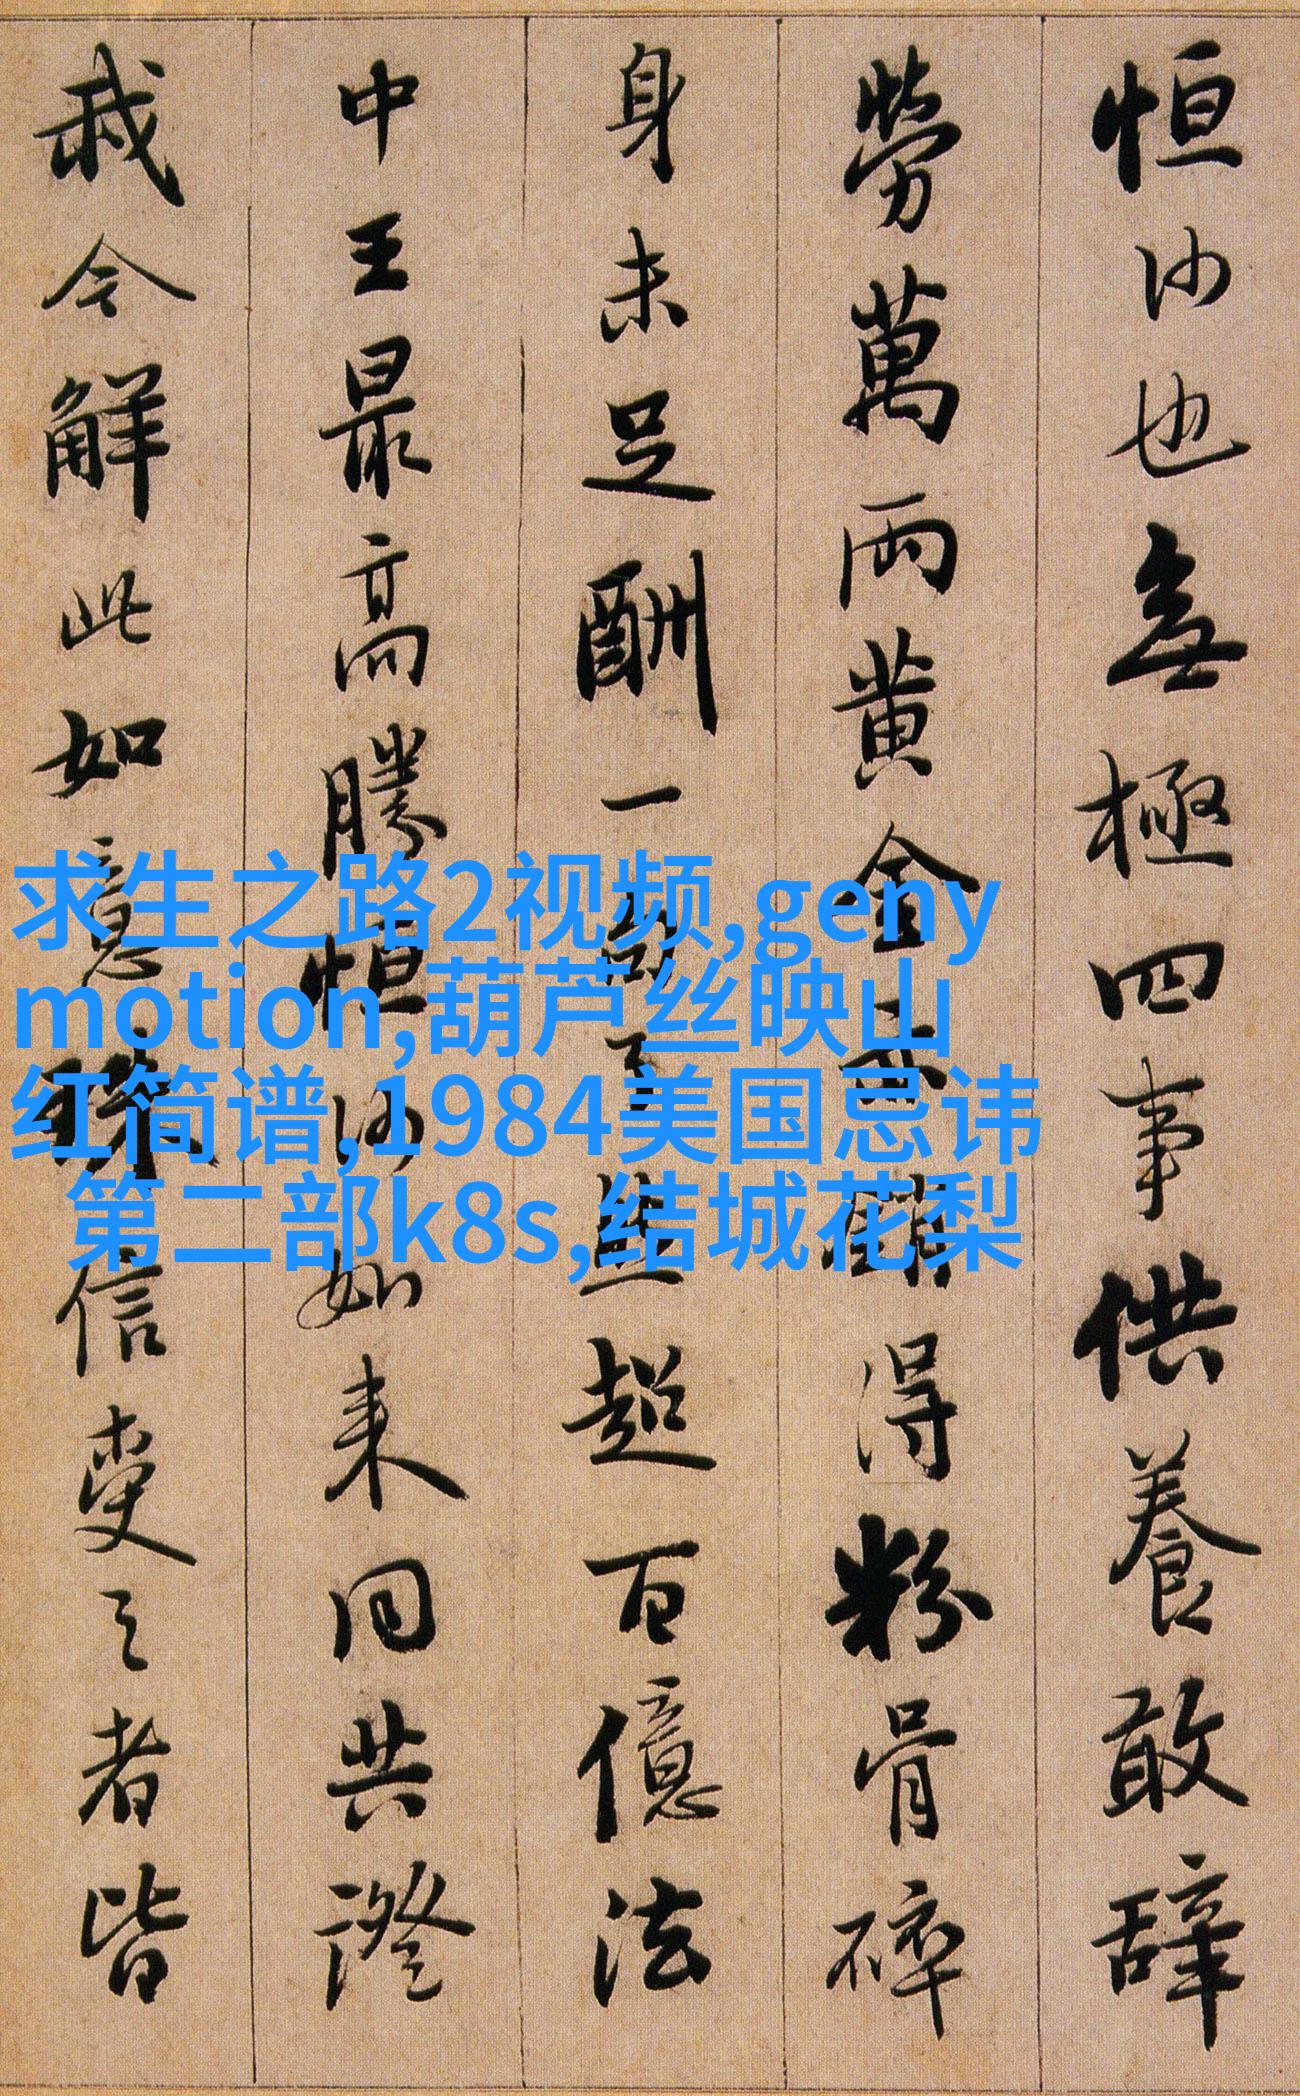 恒沙也無極四事供養敢辞
勞萬兩黄金亦銷得粉骨碎
身未足酬一句了然超百億法
中王最高勝恒沙如来同共證
我今解此如意珠信受之者皆
求生之路2视频,geny
motion,葫芦丝映山
红简谱,1984美国忌讳
第二部k8s,结城花梨